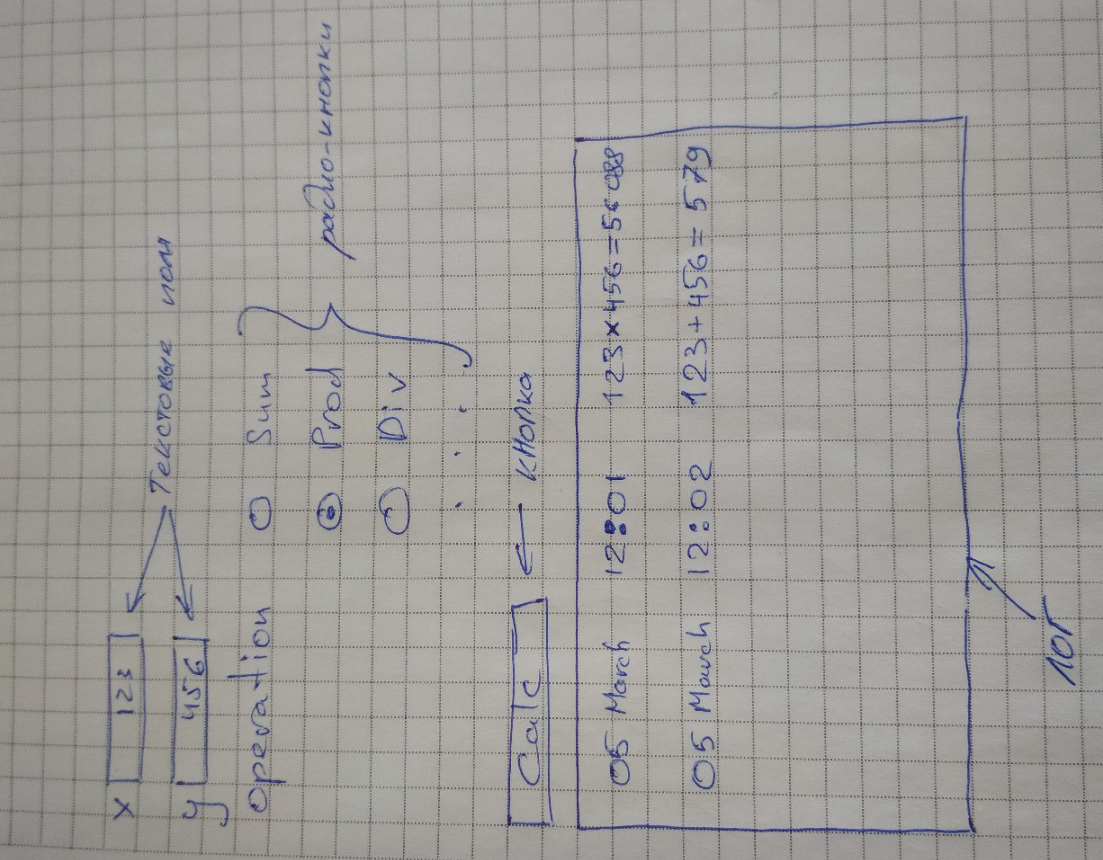 x 123
Текстовые поля
y 456
Operation
Sum
Prod
Div
радио-кнопки
Calc
кнопка
05 March 12:01 123×456=56088
05 March 12:02 123+456=579
лог